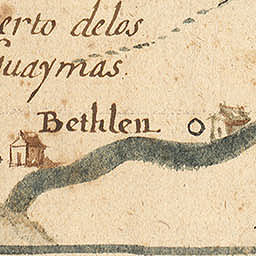 erto delos
Guaymas.
Bethlen